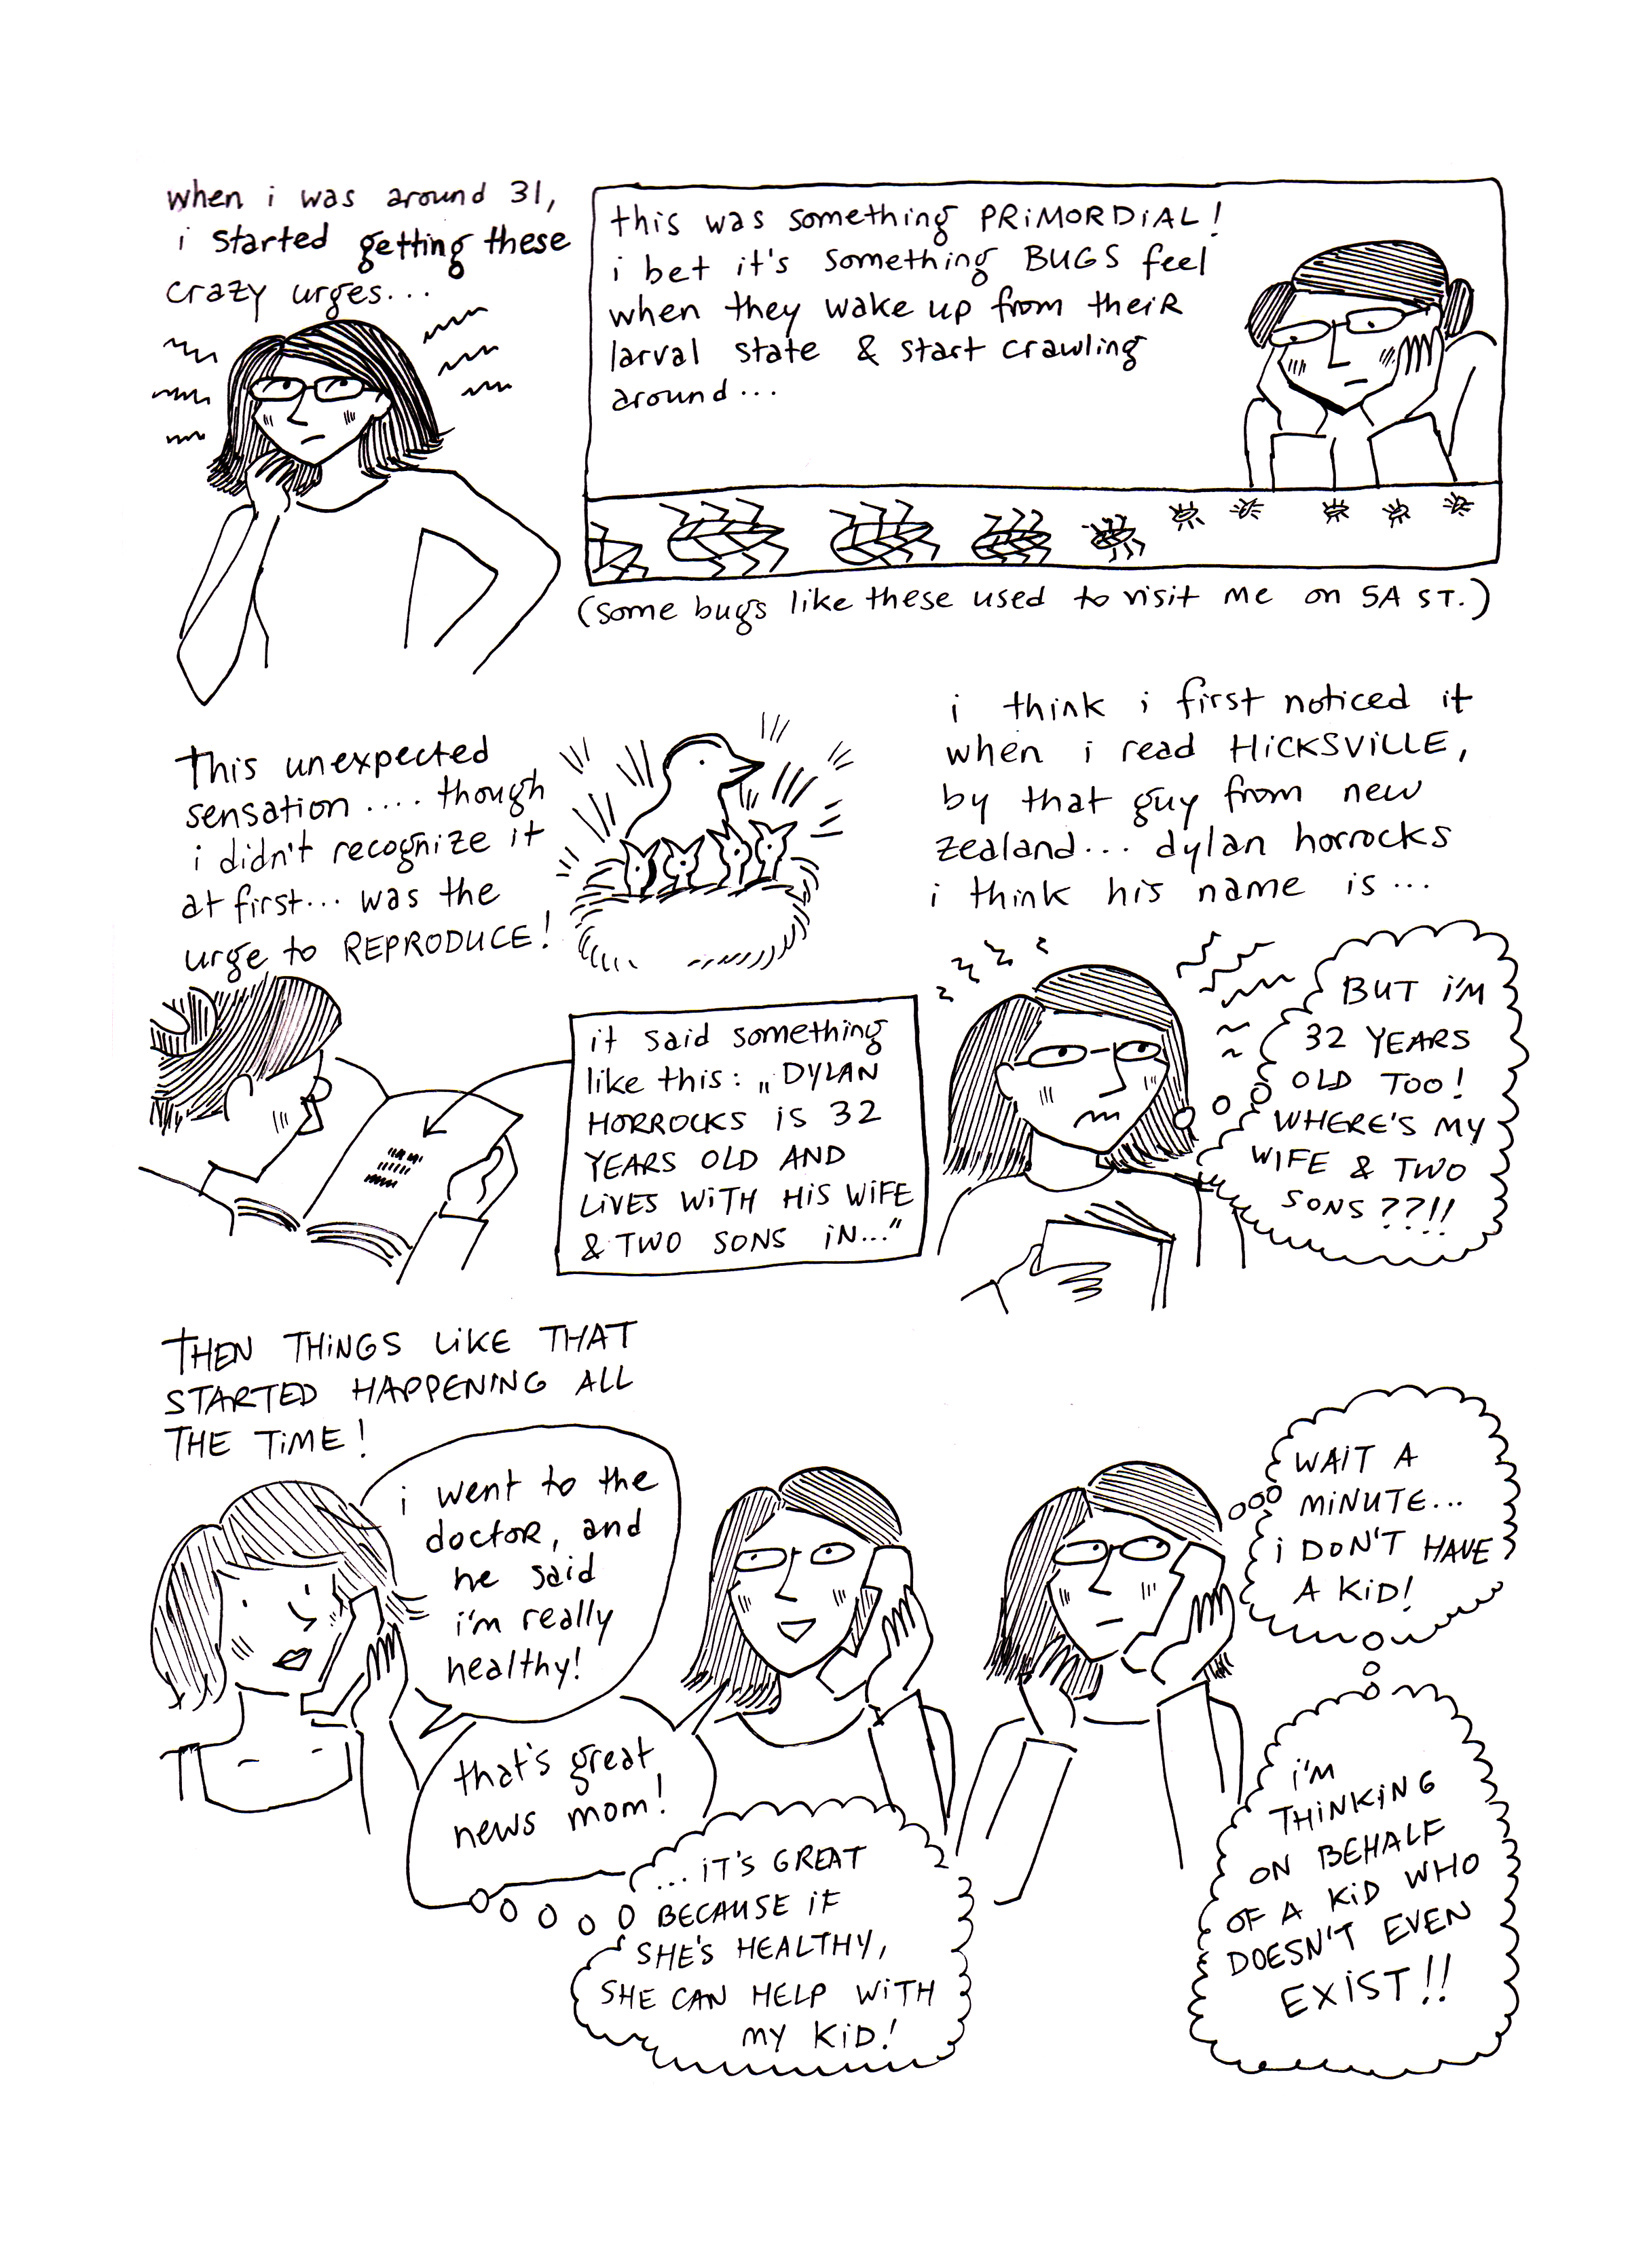 when i was around 31,
i started getting these
crazy urges...
this was something PRiMORDiAL!
i bet it's something BUGS feel
when they wake up from theiR
larval state & start crawling
around...
(some bugs like these used to visit me on SA ST.)
This unexpected
sensation .... though
i didn't recognize it
at first... was the
urge to REPRODUCE!
i think i first noticed it
when i read HiCKSViLLE,
by that guy from new
zealand... dylan horrocks
i think his name is...
it said something
like this: „DYLAN
HORROCKS iS 32
YEARS OLD AND
LiVES WiTH HiS WiFE
& TWO SONS iN..."
BUT i'M
32 YEARS
OLD TOO!
WHERE'S MY
WiFE & TWO
SONS??!!
THEN THiNGS LiKE THAT
STARTED HAPPENiNG ALL
THE TiME!
i went to the
doctoR, and
he said
i'm really
healthy!
that's great
news mom!
...iT'S GREAT
BECAUSE iF
SHE'S HEALTHY,
SHE CAN HELP WiTH
MY KiD!
WAiT A
MiNUTE...
i DON'T HAVE
A KiD!
i'M
THiNKiNG
ON BEHALF
OF A KiD WHO
DOESN'T EVEN
EXiST!!